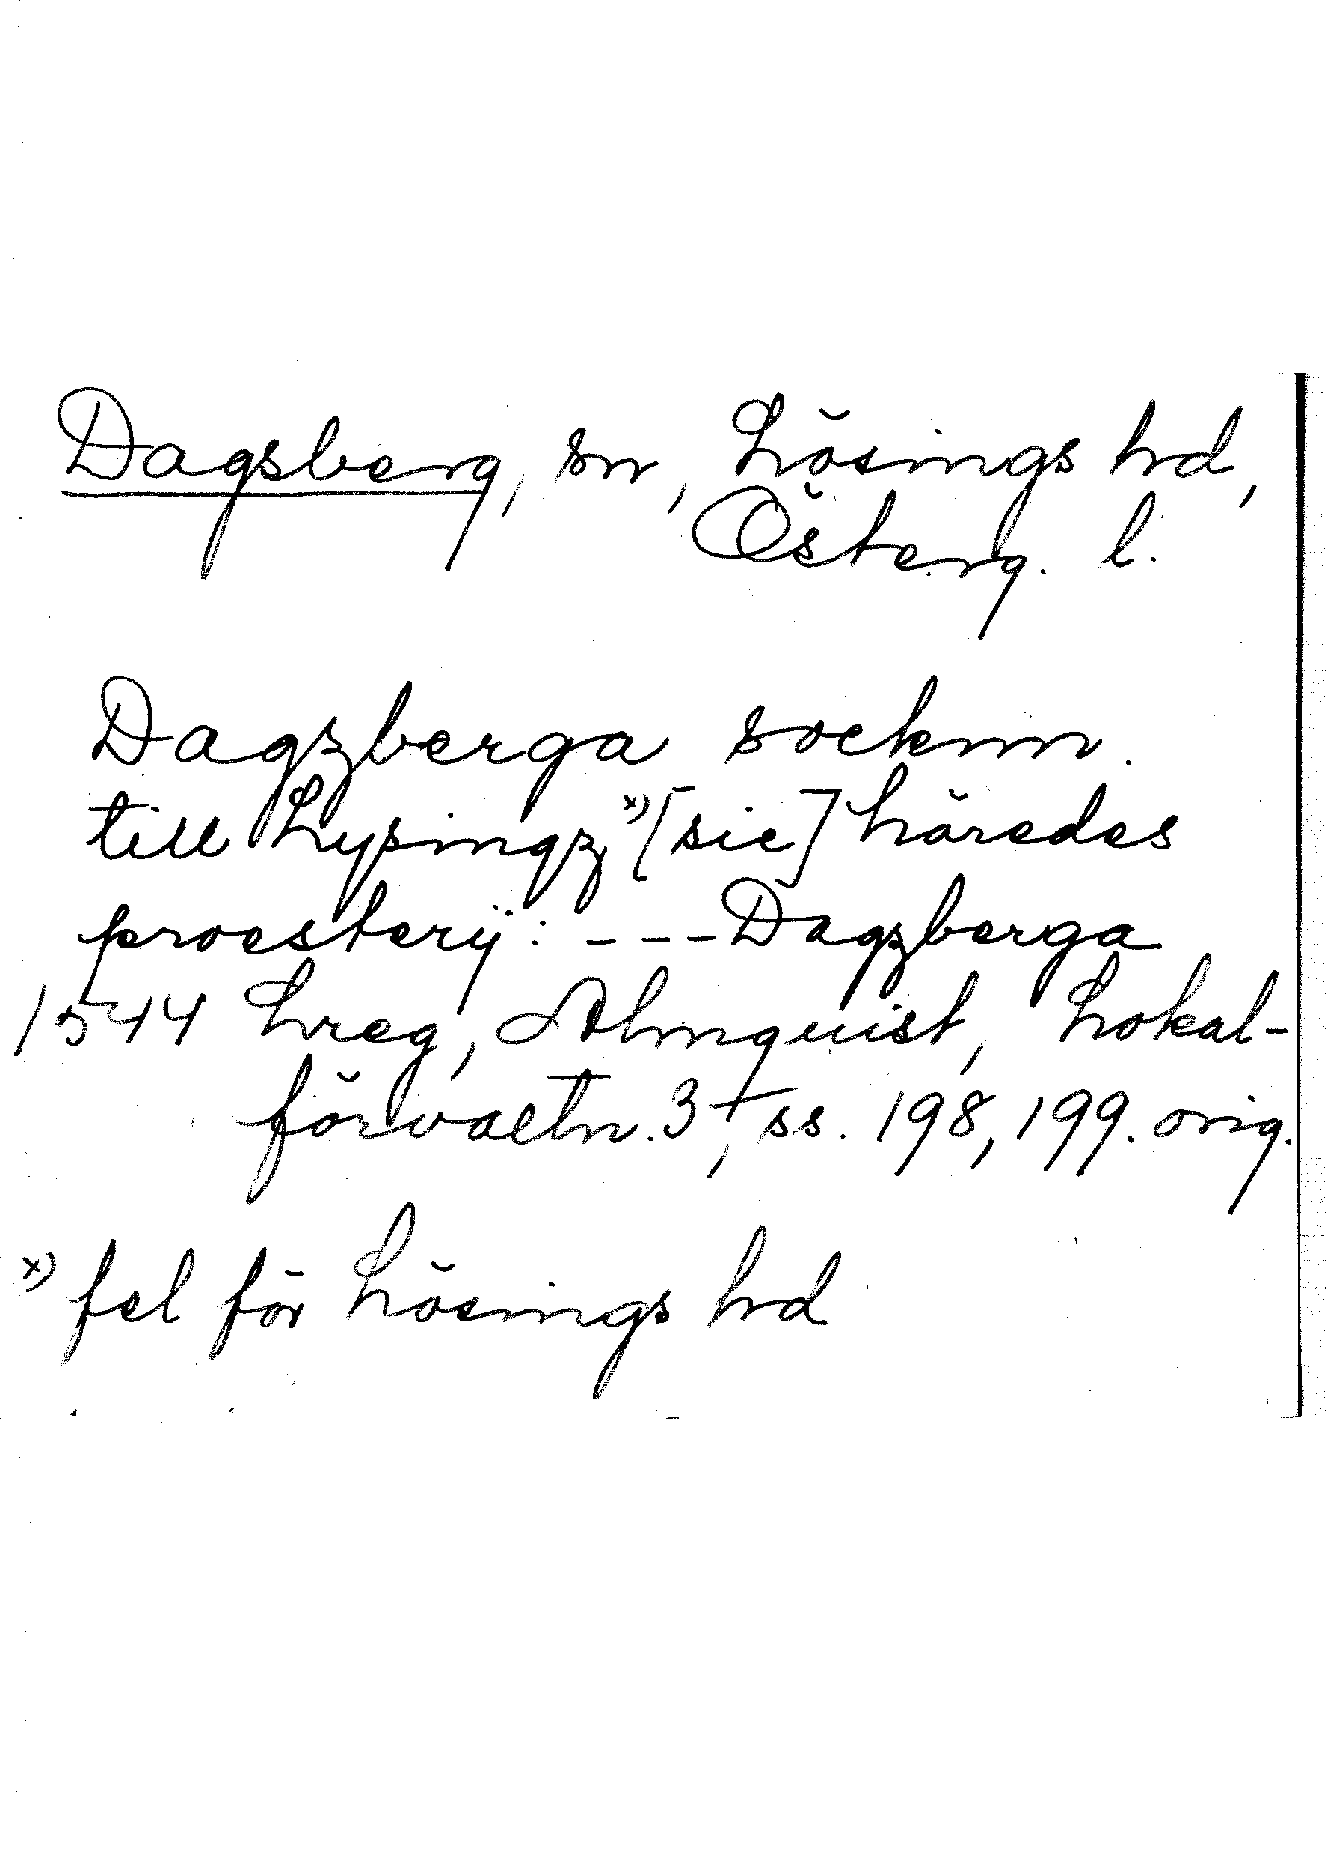 Dagsberg, sn, Lösings hd,
Österg. l.
Dagzberga socknn.
till Lysingz x) [sic] häredes
proesterij: --- Dagzberga
1544 Lreg, Almquist, Lokal-
förvaltn. 3, ss. 198, 199. orig.
x) fel för Lösings hd